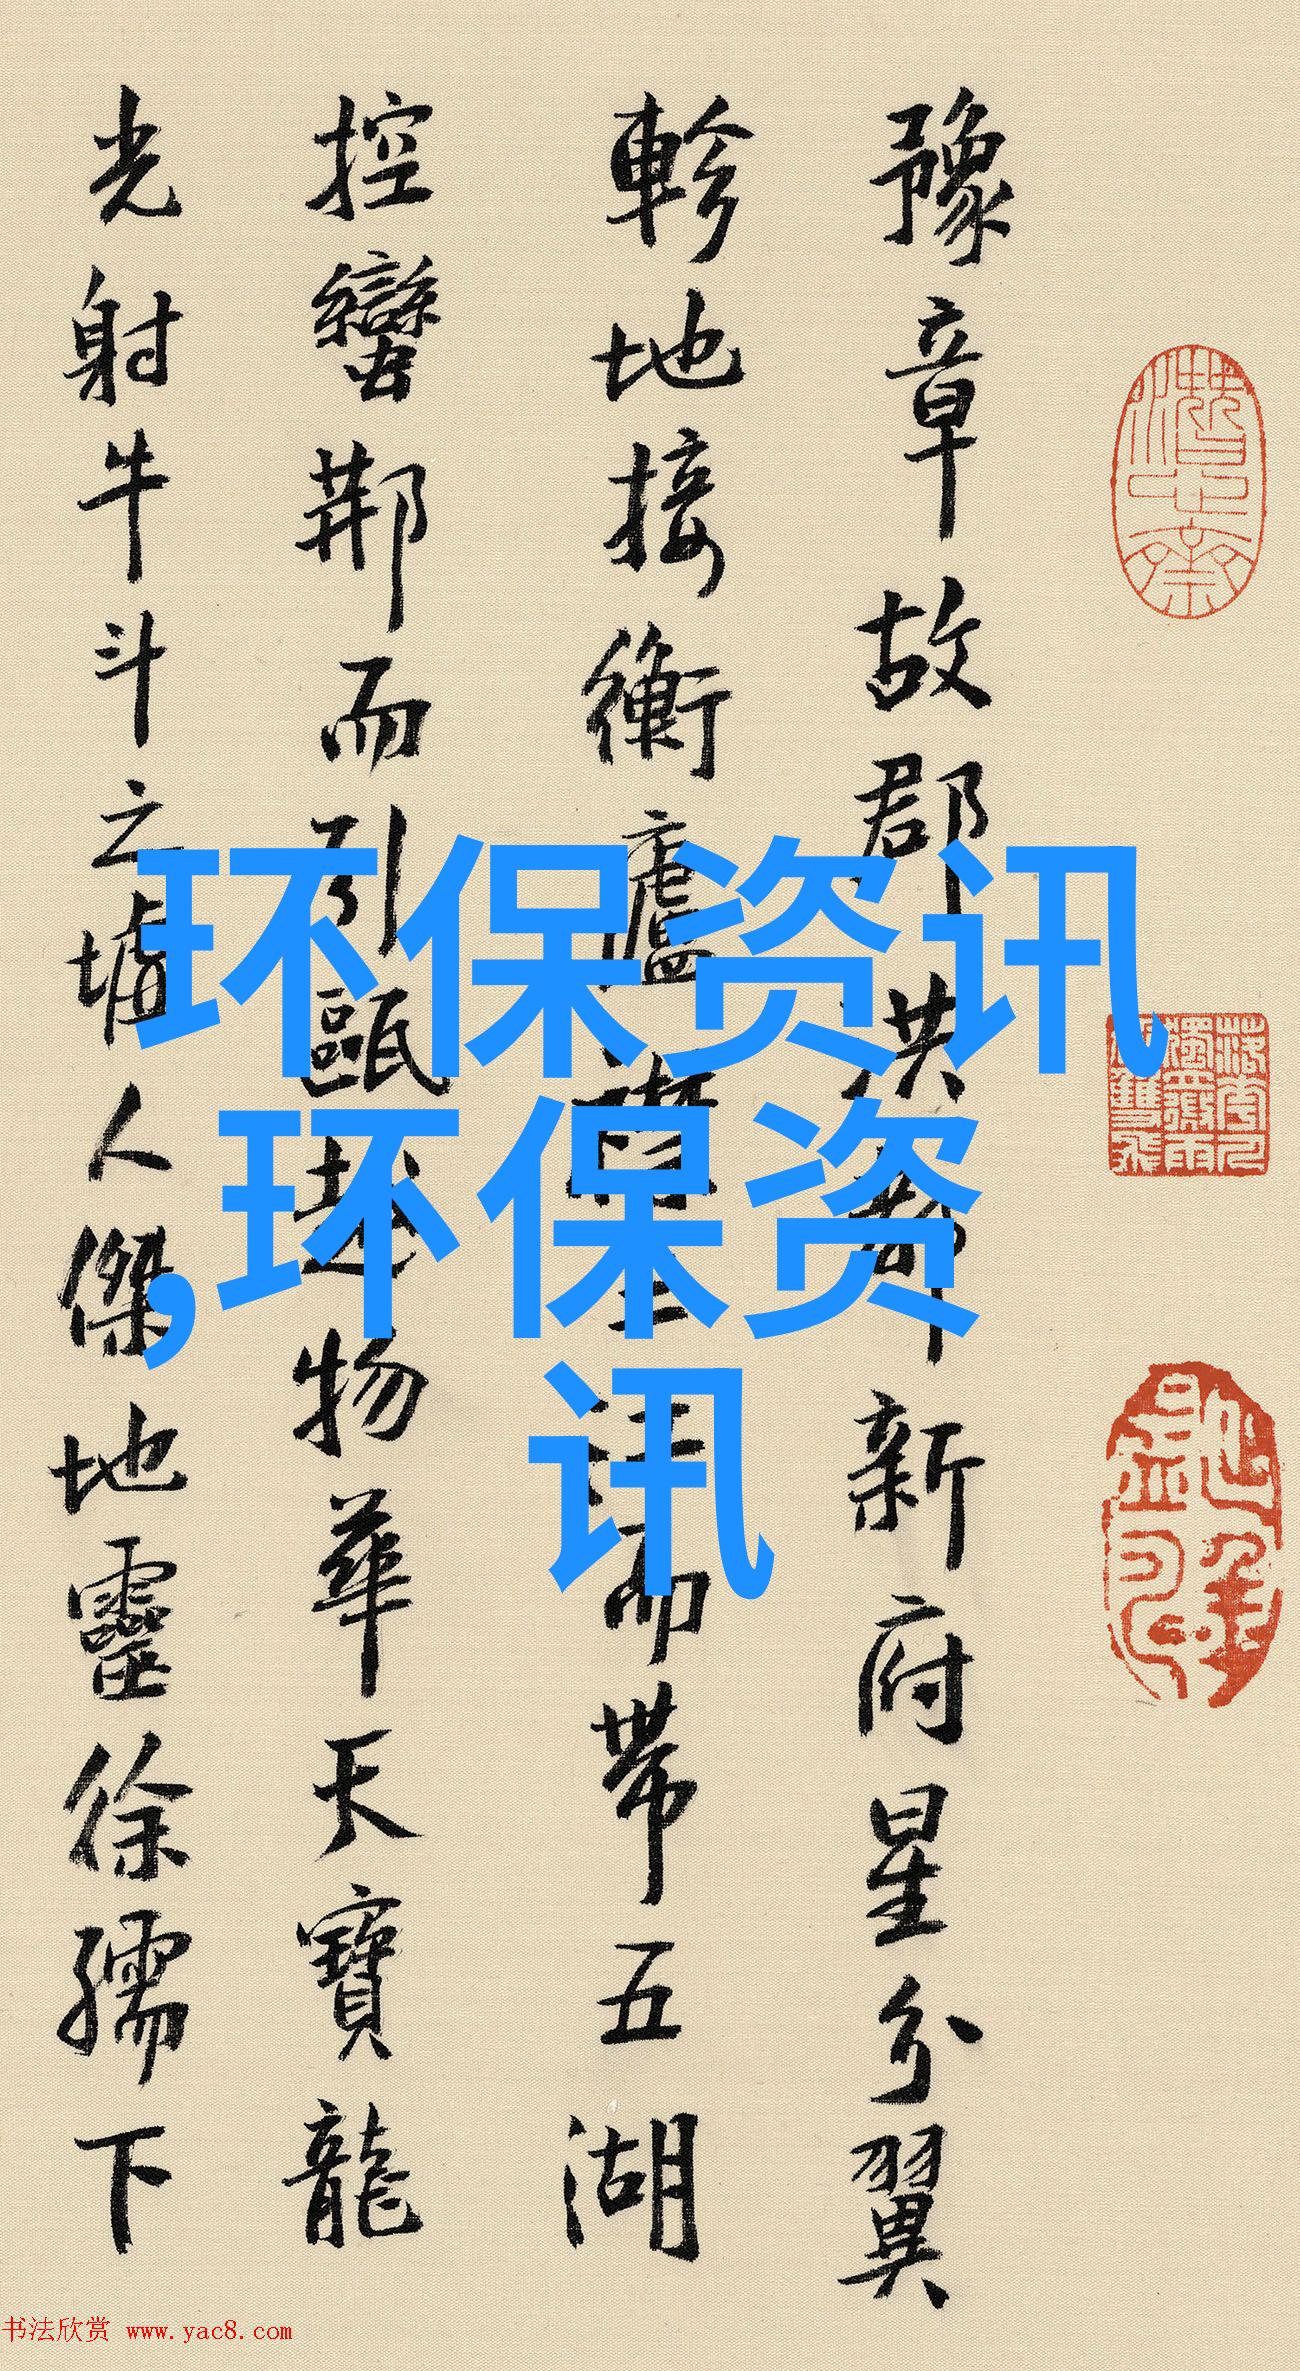 豫章故郡洪都新府星分翼
軫地接衡廬襟三江而帶五湖
控蠻荊而引甌越物華天寶龍
光射牛斗之墟人傑地靈徐孺下
环保资讯
,环保资
讯
书法欣赏 www.yac8.com